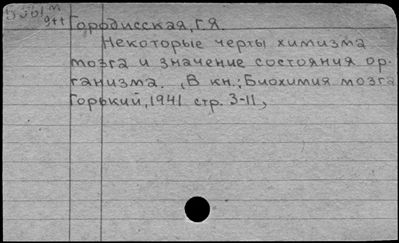 Городисская, Г.Я.
Некоторые черты химизма
мозга и значение состояния ор-
ганизма. , В кн.: Биохимия мозга
Горький, 1941 стр. 3-11,